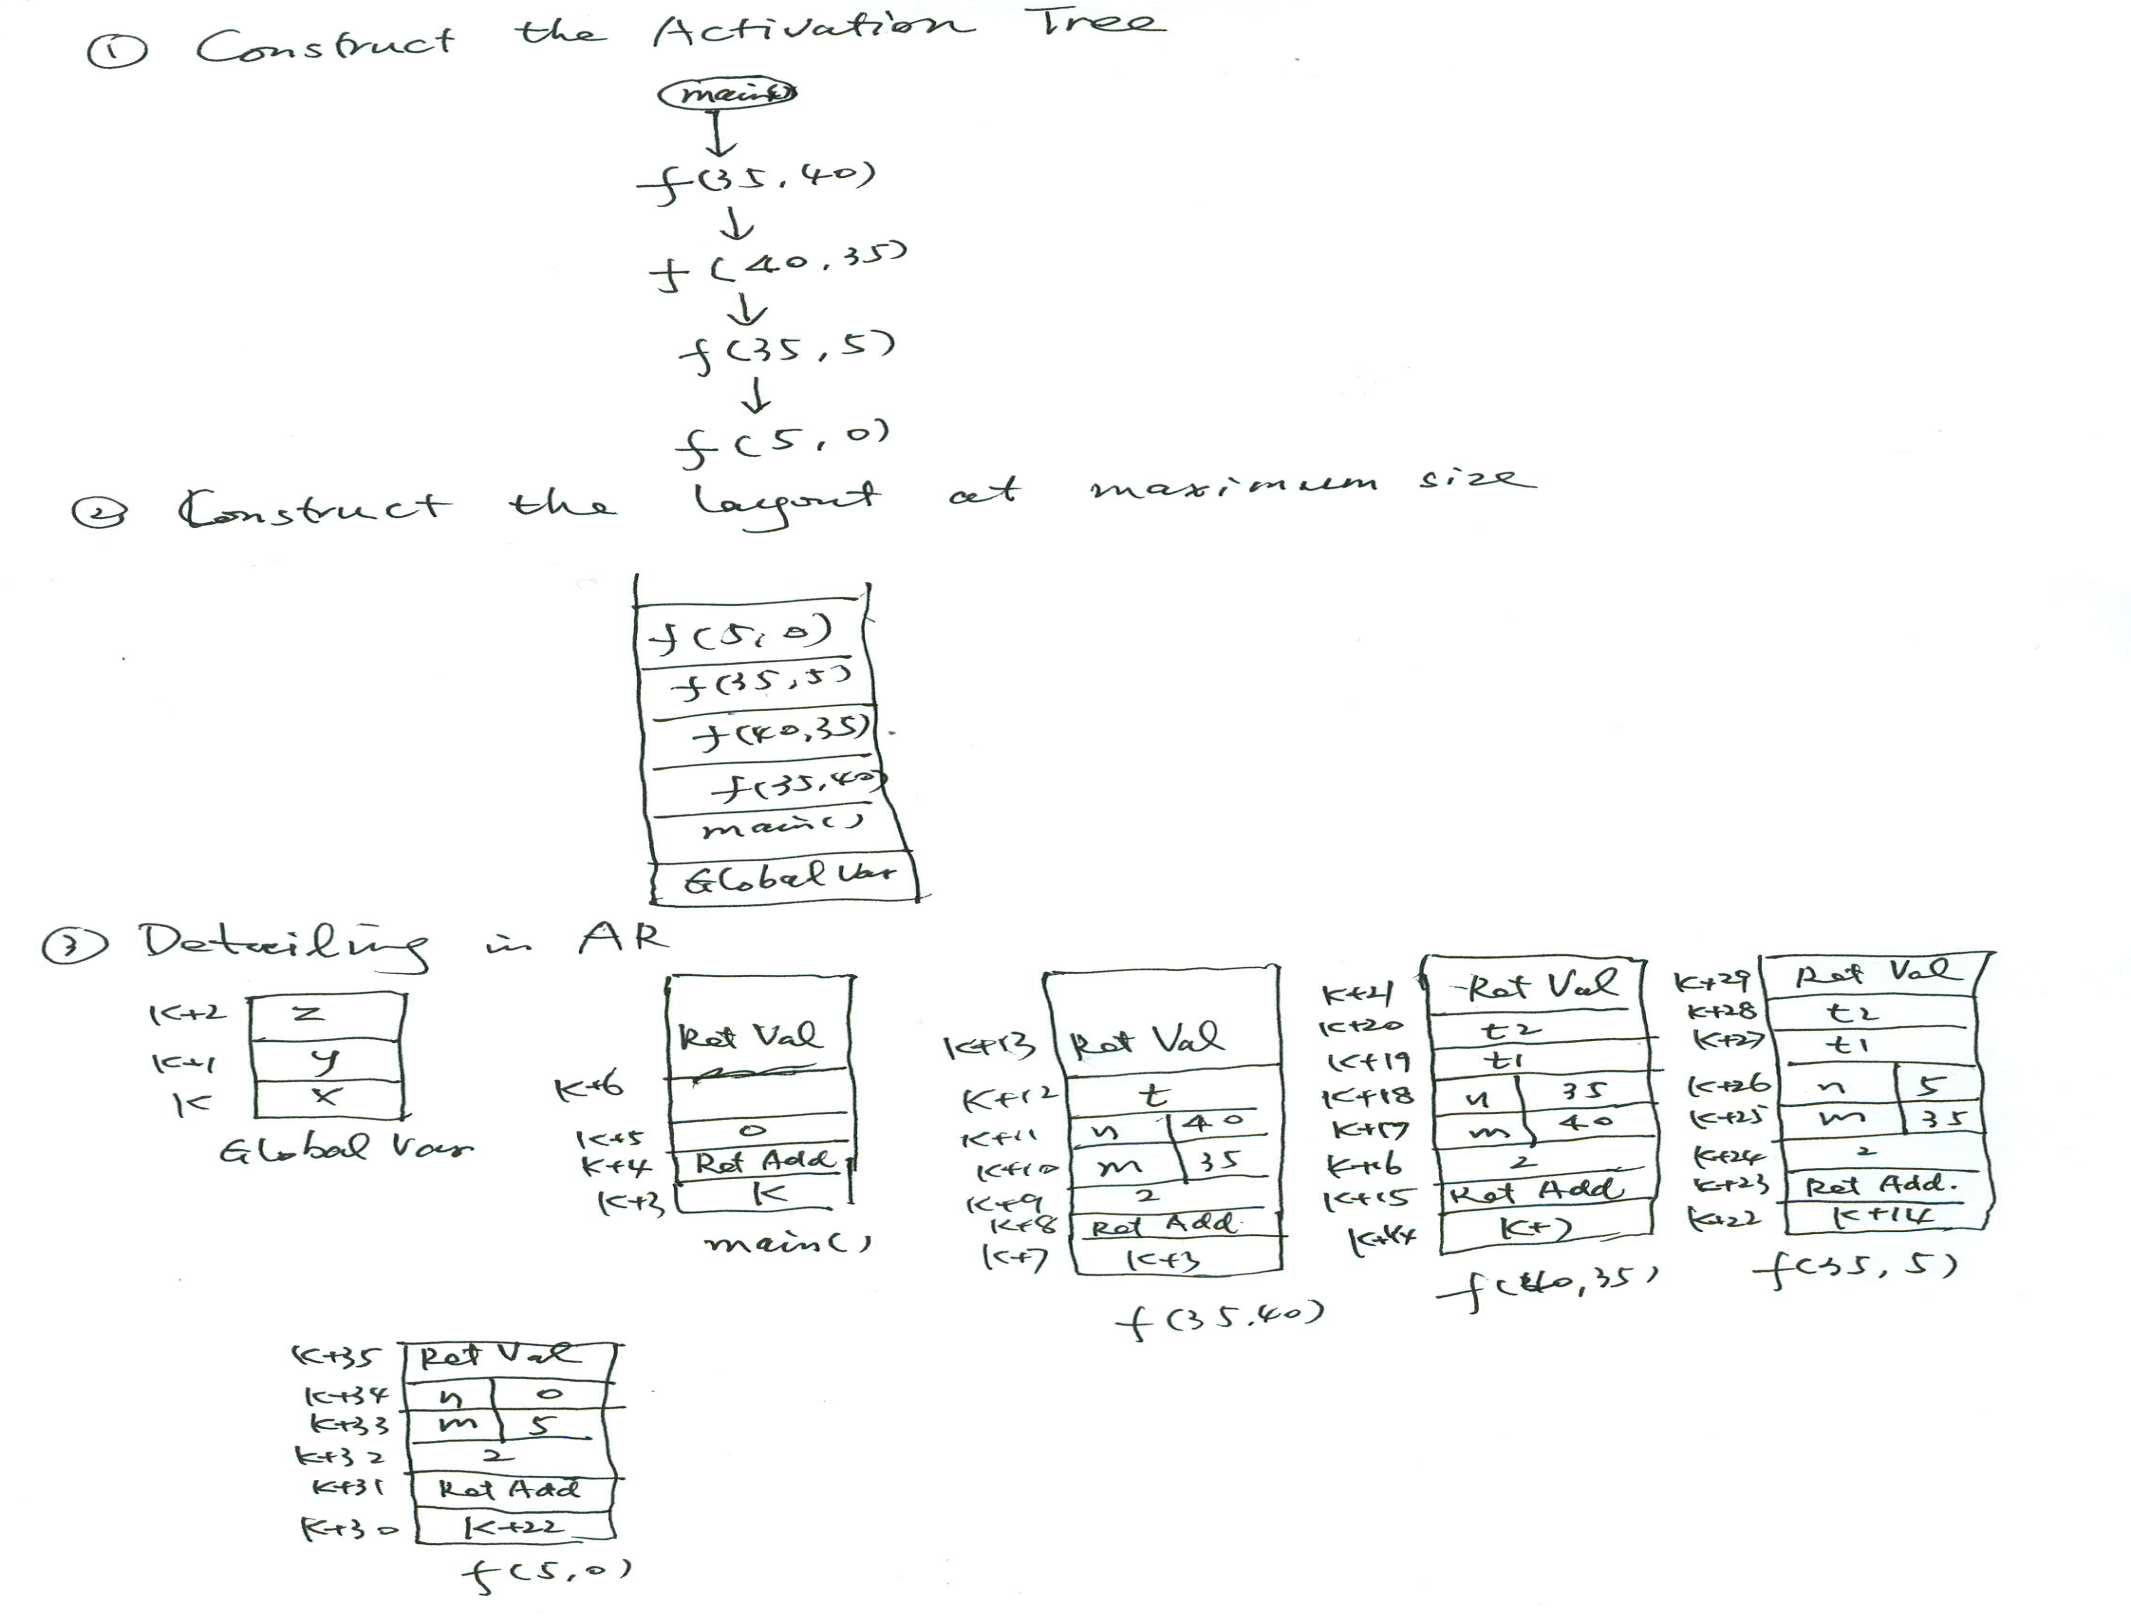 ① Construct the Activation Tree
main()
↓
f(35,40)
↓
f(40,35)
↓
f(35,5)
↓
f(5,0)
② Construct the layout at maximum size
f(5,0)
f(35,5)
f(40,35)
f(35,40)
main()
Global Var
③ Detailing in AR
K+2 z
K+1 y
K x
Global Var
Ret Val
K+6
K+5 0
K+4 Ret Add
K+3 K
main()
K+13 Ret Val
K+12 t
K+11 n 40
K+10 m 35
K+9 2
K+8 Ret Add.
K+7 K+3
f(35,40)
K+21 Ret Val
K+20 t2
K+19 t1
K+18 n 35
K+17 m 40
K+16 2
K+15 Ret Add
K+14 K+7
f(40,35)
K+29 Ret Val
K+28 t2
K+27 t1
K+26 n 5
K+25 m 35
K+24 2
K+23 Ret Add.
K+22 K+14
f(35,5)
K+35 Ret Val
K+34 n 0
K+33 m 5
K+32 2
K+31 Ret Add
K+30 K+22
f(5,0)